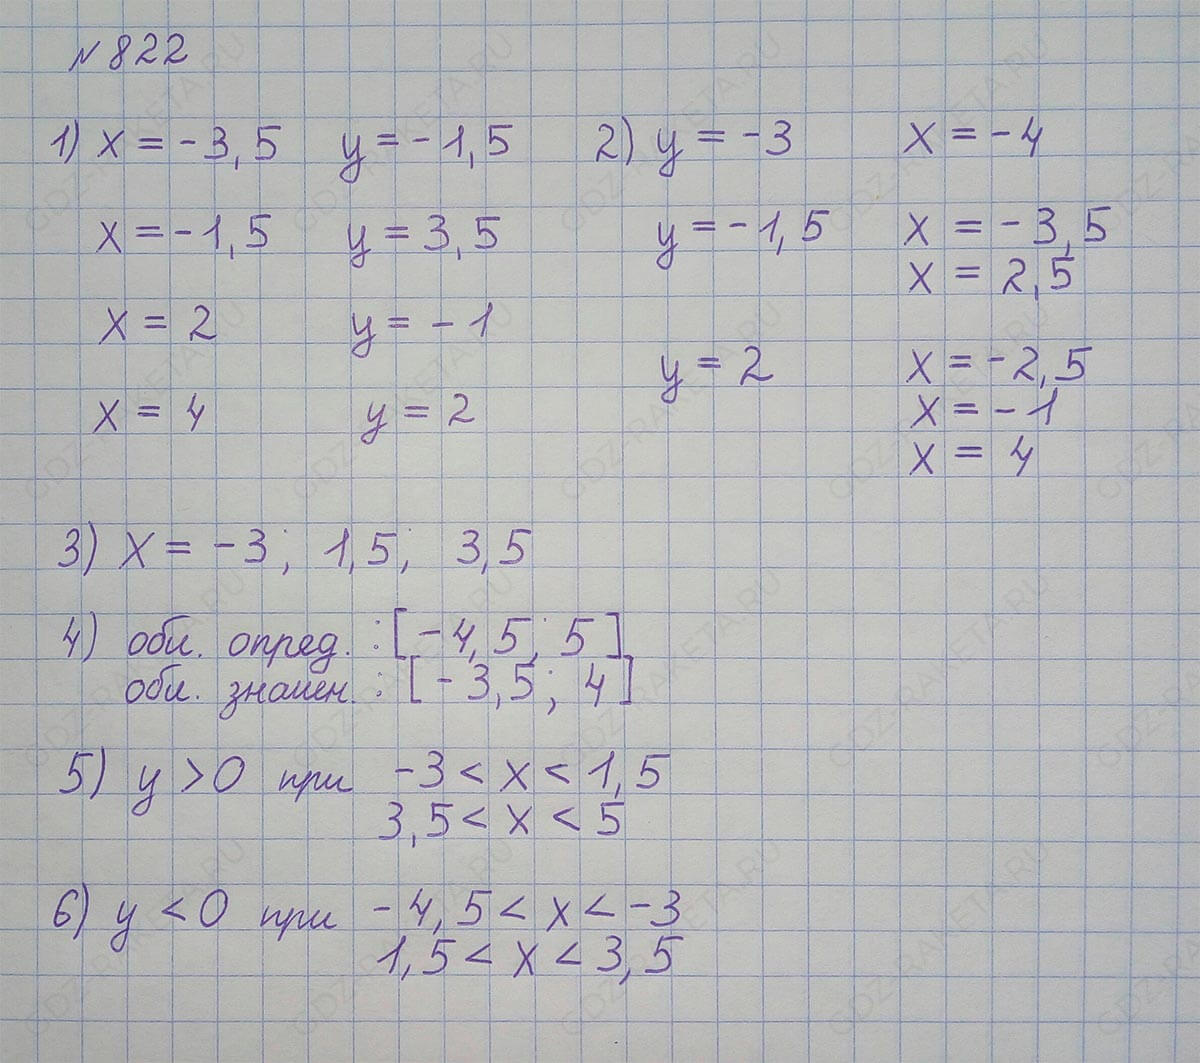 №822
1) x = -3,5 y = -1,5 2) y = -3 x = -4
x = -1,5 y = 3,5 y = -1,5 x = -3,5
x = 2,5
x = 2 y = -1
y = 2 x = -2,5
x = 4 y = 2 x = -1
x = 4
3) x = -3; 1,5; 3,5
4) обл. опред. : [-4,5; 5]
обл. значен. : [-3,5; 4]
5) y > 0 при -3 < x < 1,5
3,5 < x < 5
6) y < 0 при -4,5 < x < -3
1,5 < x < 3,5
GDZ-RAKETA.RU